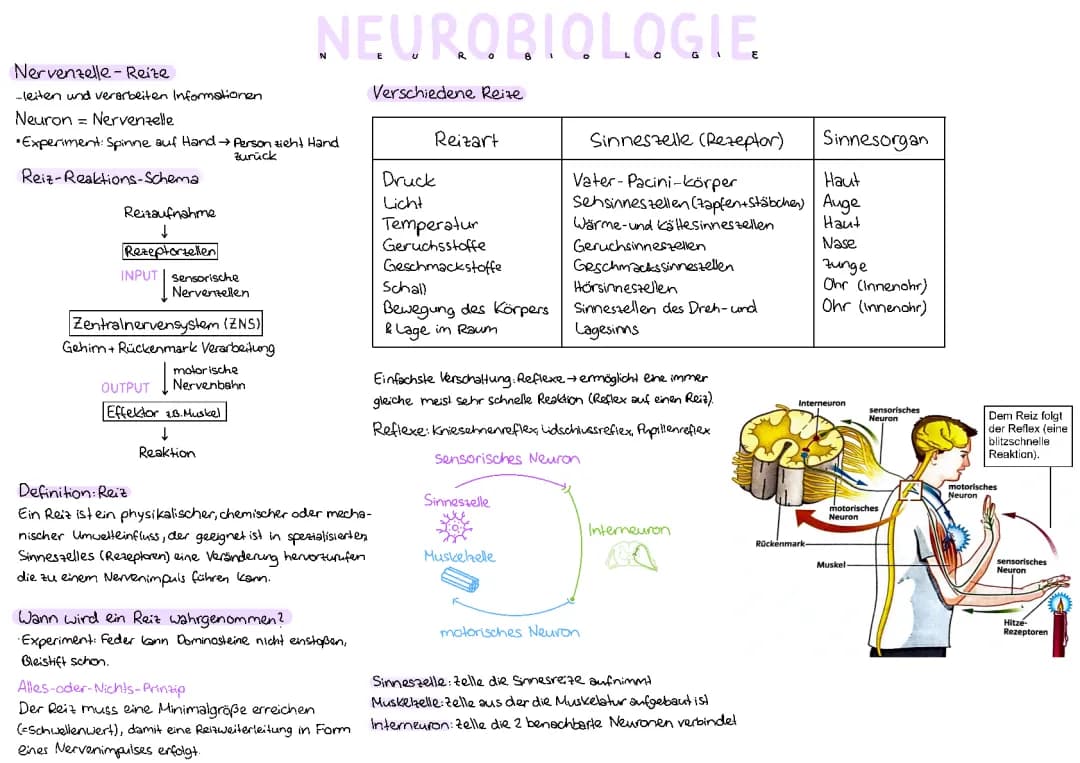 NEUROBIOLOGIE
N E U R O B I O L O G I E
Nervenzelle - Reize
-leiten und verarbeiten Informationen
Neuron = Nervenzelle
•Experiment: Spinne auf Hand → Person zieht Hand
zurück
Reiz-Reaktions-Schema
Reizaufnahme
↓
Rezeptorzellen
INPUT ↓ sensorische
Nervenzellen
Zentralnervensystem (ZNS)
Gehirn + Rückenmark Verarbeitung
motorische
OUTPUT ↓ Nervenbahn
Effektor z.B. Muskel
↓
Reaktion
Definition: Reiz
Ein Reiz ist ein physikalischer, chemischer oder mecha-
nischer Umwelteinfluss, der geeignet ist in spezialisierten
Sinneszelles (Rezeptoren) eine Veränderung hervorzurufen
die zu einem Nervenimpuls führen kann.
Wann wird ein Reiz wahrgenommen?
·Experiment: Feder kann Dominosteine nicht enstoßen,
Bleistift schon.
Alles-oder-Nichts-Prinzip
Der Reiz muss eine Minimalgröße erreichen
(=Schwellenwert), damit eine Reizweiterleitung in Form
eines Nervenimpulses erfolgt.
Verschiedene Reize
Reizart Sinneszelle (Rezeptor) Sinnesorgan
Druck Vater-Pacini-körper Haut
Licht Sehsinneszellen (Zapfen+Stäbchen) Auge
Temperatur Wärme-und Kältesinneszellen Haut
Geruchsstoffe Geruchsinneszellen Nase
Geschmackstoffe Geschmackssinneszellen Zunge
Schall Hörsinneszellen Ohr (Innenohr)
Bewegung des Körpers Sinneszellen des Dreh-und Ohr (Innenohr)
& Lage im Raum Lagesinns
Einfachste Verschaltung: Reflexe → ermöglicht eine immer
gleiche meist sehr schnelle Reaktion (Reflex auf einen Reiz).
Reflexe: Kniesehnenreflex, Lidschlussreflex, Pupillenreflex
sensorisches Neuron
Sinneszelle
Interneuron
Muskelzelle
motorisches Neuron
Sinneszelle: Zelle die Sinnesreize aufnimmt
Muskelzelle: Zelle aus der die Muskelatur aufgebaut ist
Interneuron: Zelle die 2 benachbarte Neuronen verbindet
Interneuron
sensorisches
Neuron
Dem Reiz folgt
der Reflex (eine
blitzschnelle
Reaktion).
motorisches
Neuron
motorisches
Neuron
Rückenmark
Muskel
sensorisches
Neuron
Hitze-
Rezeptoren